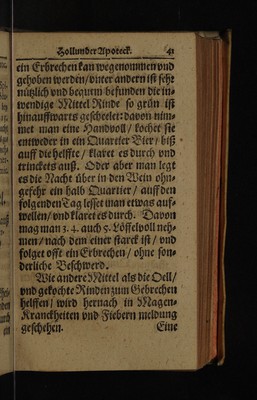 Hollunder Apoteck. 41
ein Erbrechen kan wegenommen vnd
gehoben werden / vnter andern ist sehr
nützlich vnd bequem befunden die in-
wendige Mittel Rinde so grün ist
hinauffwarts gescheelet: davon nim-
met man eine Handvoll / kochet sie
entweder in ein Quartier Bier / biß
auff die helffte / klaret es durch vnd
trinckets auß. Oder aber man legt
es die Nacht über in den Wein ohn-
gefehr ein halb Quartier / auff den
folgenden Tag lesset man etwas auf-
wellen / vnd klaret es durch. Davon
mag man 3. 4. auch 5. Löffelvoll neh-
men / nach dem einer starck ist / vnd
folget offt ein Erbrechen / ohne son-
derliche Beschwerd.
Wie andere Mittel als die Oell /
vnd gekochte Rinden zum Gebrechen
helffen / wird hernach in Magen-
Kranckheiten vnd Fiebern meldung
geschehen. Eine